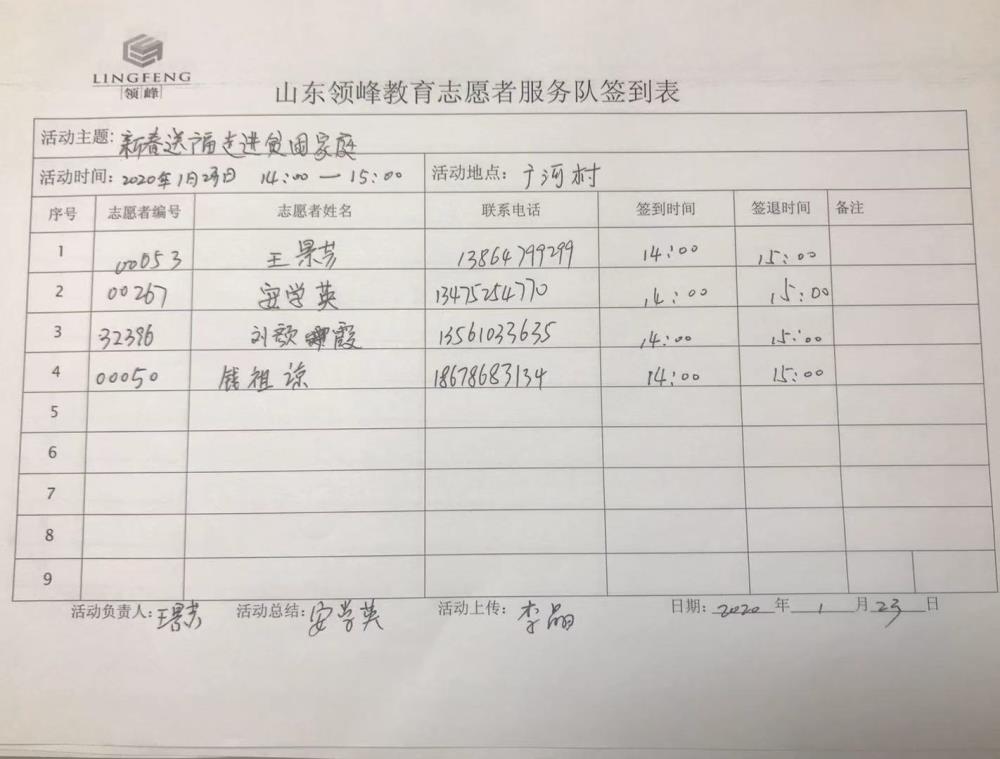 LINGFENG
领峰
山东领峰教育志愿者服务队签到表
活动主题: 新春送福走进贫困家庭
活动时间: 2020年1月23日 14:00—15:00 活动地点: 于河村
序号 志愿者编号 志愿者姓名 联系电话 签到时间 签退时间 备注
1 00053 王景芳 13864799299 14:00 15:00
2 00267 安学英 13475254770 14:00 15:00
3 32396 刘 霞 13561033635 14:00 15:00
4 00050 钱祖谅 18678683134 14:00 15:00
5
6
7
8
9
活动负责人: 王景芳 活动总结: 安学英 活动上传: 李晶 日期: 2020 年 1 月 23 日